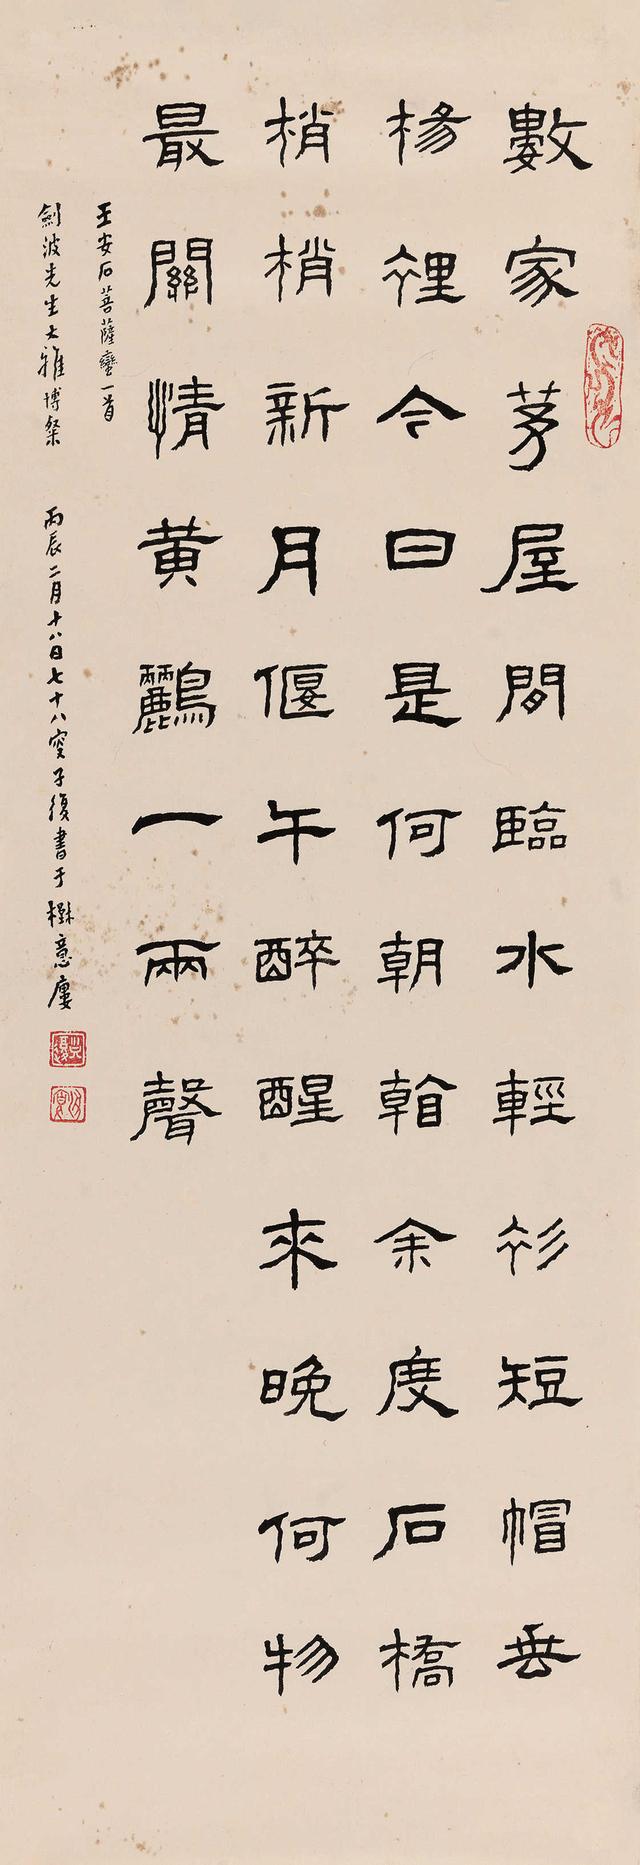 數家茅屋間臨水輕衫短帽垂
楊裡今日是何朝看余度石橋
梢梢新月偃午醉醒來晚何物
最關情黃鸝一兩聲
王安石菩薩蠻一首
劍波先生大雅博粲 丙辰二月十八日七十八叟子復書于楙意廔